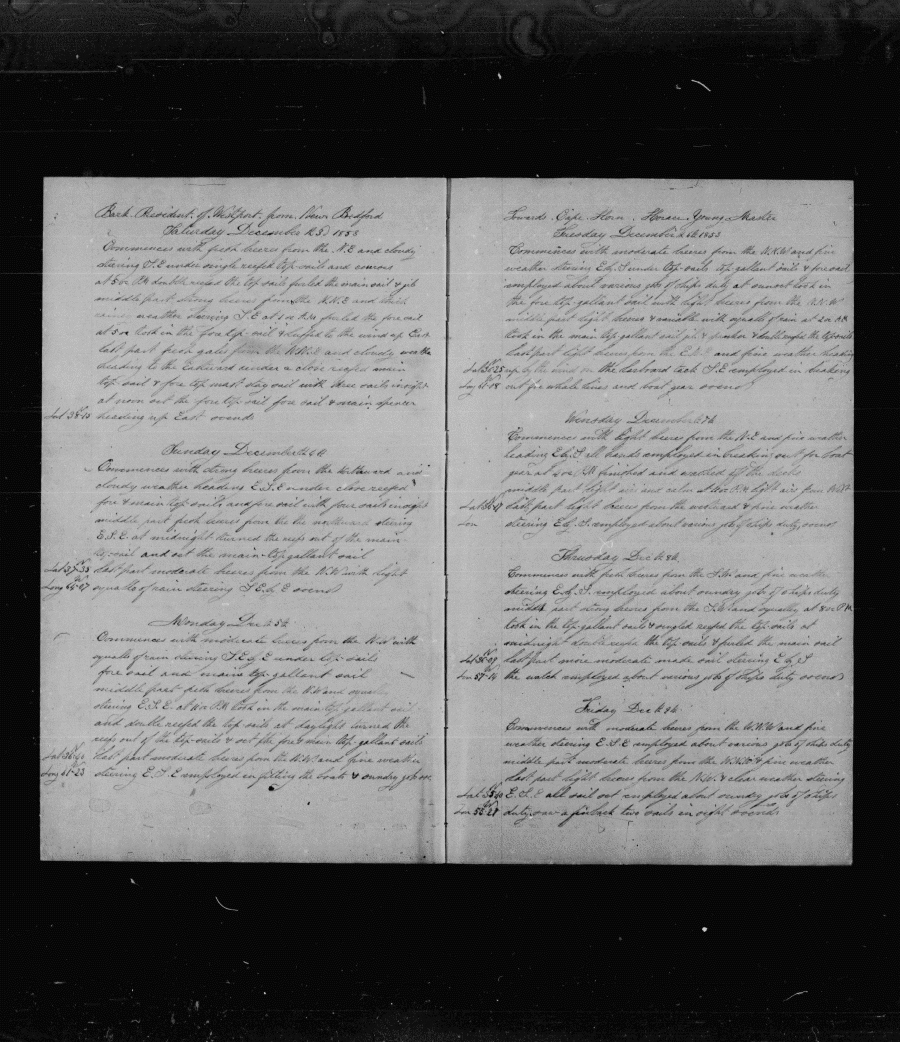 Bark President of Westport from New Bedford
Saturday December the 3d 1853
Commences with fresh breeses from the N.E and cloudy
steering S.E under single reefed top-sails and courses
at 5 oc P.M double reefed the top sails furled the main sail & jib
middle part strong breeses from the N.N.E and thick
weather steering S.E at furled the fore sail
at 5 oc took in the fore top-sail & to the wind up East
last part fresh gales from the N.N.E and cloudy weather
heading to the Eastward under a close reefed main
top-sail & fore top mast stay sail with three sails insight
at noon set the fore top-sail fore sail & main spencer
Lat 38-15 heading up East so ends
Sunday December the 4th
Commences with strong breeses from the Northward and
cloudy weather heading E.S.E under close reefed
fore & main top-sails and fore sail with four sails insight
middle part fresh breeses from the the northward steering
E.S.E. at midnight turned the reefs out of the main
top-sail and set the main-top-gallant sail
Lat 37-33 last part moderate breeses from the N.W with light
Long 64-07 squalls of rain steering S.E by E so ends
Monday Dec the 5th
Commences with moderate breeses from the N.W with
squalls of rain steering S.E by E under top-sails
fore sail and main top-gallant sail
middle part fresh breeses from the N.W and squally
steering E.S.E. at oc P.M took in the main top gallant sail
and double reefed the top sails at daylight turned the
reefs out of the top-sails & set the fore & main top-gallant sails
Lat 36- last part moderate breeses from the N.W. and fine weather
Long 61-23 steering E.S.E employed in fitting the boats & sundry jobs
Towards Cape Horn, Horace Young Master
Tuesday December the 6th 1853
Commences with moderate breeses from the N.N.W and fine
weather steering E by S under top-sails top gallant sails & fore sail
employed about various jobs of ships duty at sunset took in
the fore top-gallant sail with light breeses from the N.N.W
middle part light breeses & variable with squalls of rain at 2 oc AM
took in the main top gallant sail jib & spanker & double reefed the top sails
last part light breeses from the and fine weather heading
Lat 35-25 up by the wind on the larboard tack S.E employed in breaking
Long 61-08 out for whale lines and boat gear so ends
Wensday December the 7th
Commences with light breeses from the N.E and fine weather
heading E by S all hands employed in breaking out for boat
gear at 2 oc P.M finished and washed off the decks
middle part light airs and calm at P.M light airs from West
last part light breeses from the westward & fine weather
Lon steering E by S employed about various jobs of ships duty so ends
Thursday Dec the 8th
Commences with fresh breeses from the S.W and fine weather
steering E by S. employed about sundry jobs of ships duty
middle part strong breeses from the S.W and squally at 8 oc P.M
took in the top-gallant sails & single reefed the top-sails at
midnight double reefed the top sails & furled the main sail
last part more moderate made sail steering E by S
Lon 57-14 the watch employed about various jobs of ships duty so ends
Friday Dec the 9th
Commences with moderate breeses from the W.N.W and fine
weather steering E.S.E employed about various jobs of ships duty
middle part moderate breeses from the W.N.W & fine weather
last part light breeses from the N.W. & clear weather steering
Lat 35-40 E.S.E all sail out employed about sundry jobs of ships
Lon 55-28 duty saw a finback two sails in sight so ends